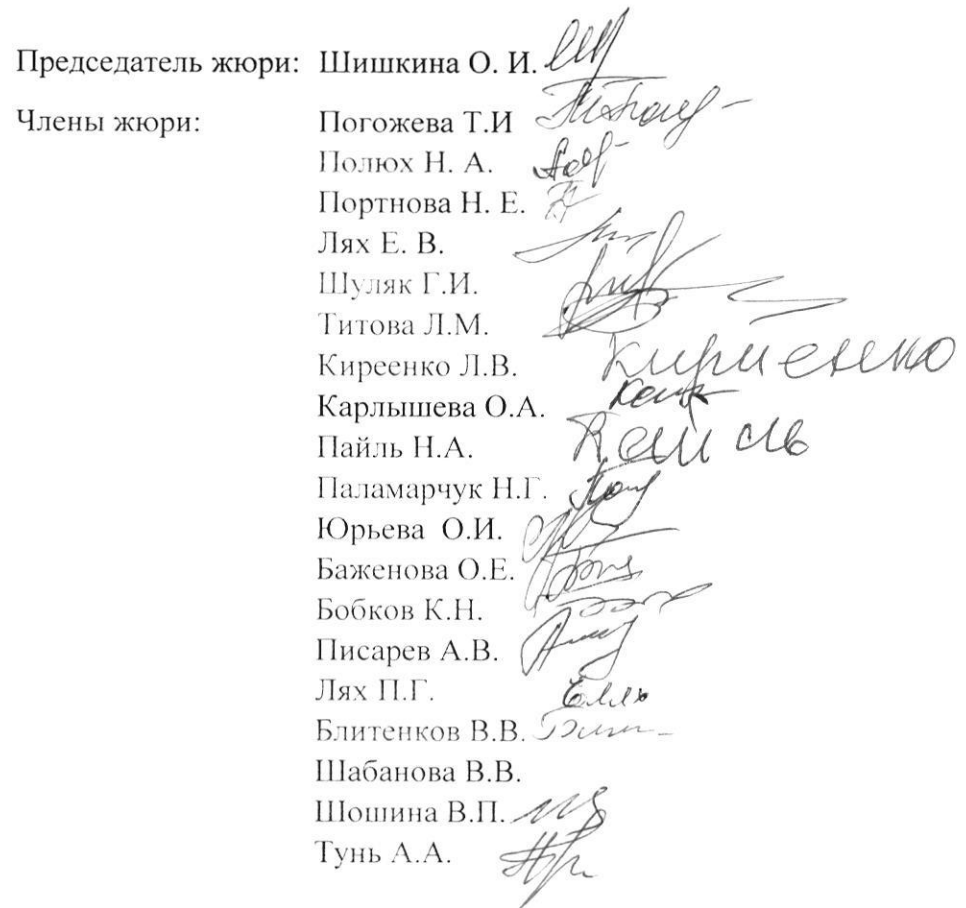 Председатель жюри: Шишкина О. И.
Члены жюри: Погожева Т.И
Полюх Н. А.
Портнова Н. Е.
Лях Е. В.
Шуляк Г.И.
Титова Л.М.
Киреенко Л.В. Кириенко
Карлышева О.А.
Пайль Н.А.
Паламарчук Н.Г.
Юрьева О.И.
Баженова О.Е.
Бобков К.Н.
Писарев А.В.
Лях П.Г.
Блитенков В.В.
Шабанова В.В.
Шошина В.П.
Тунь А.А.